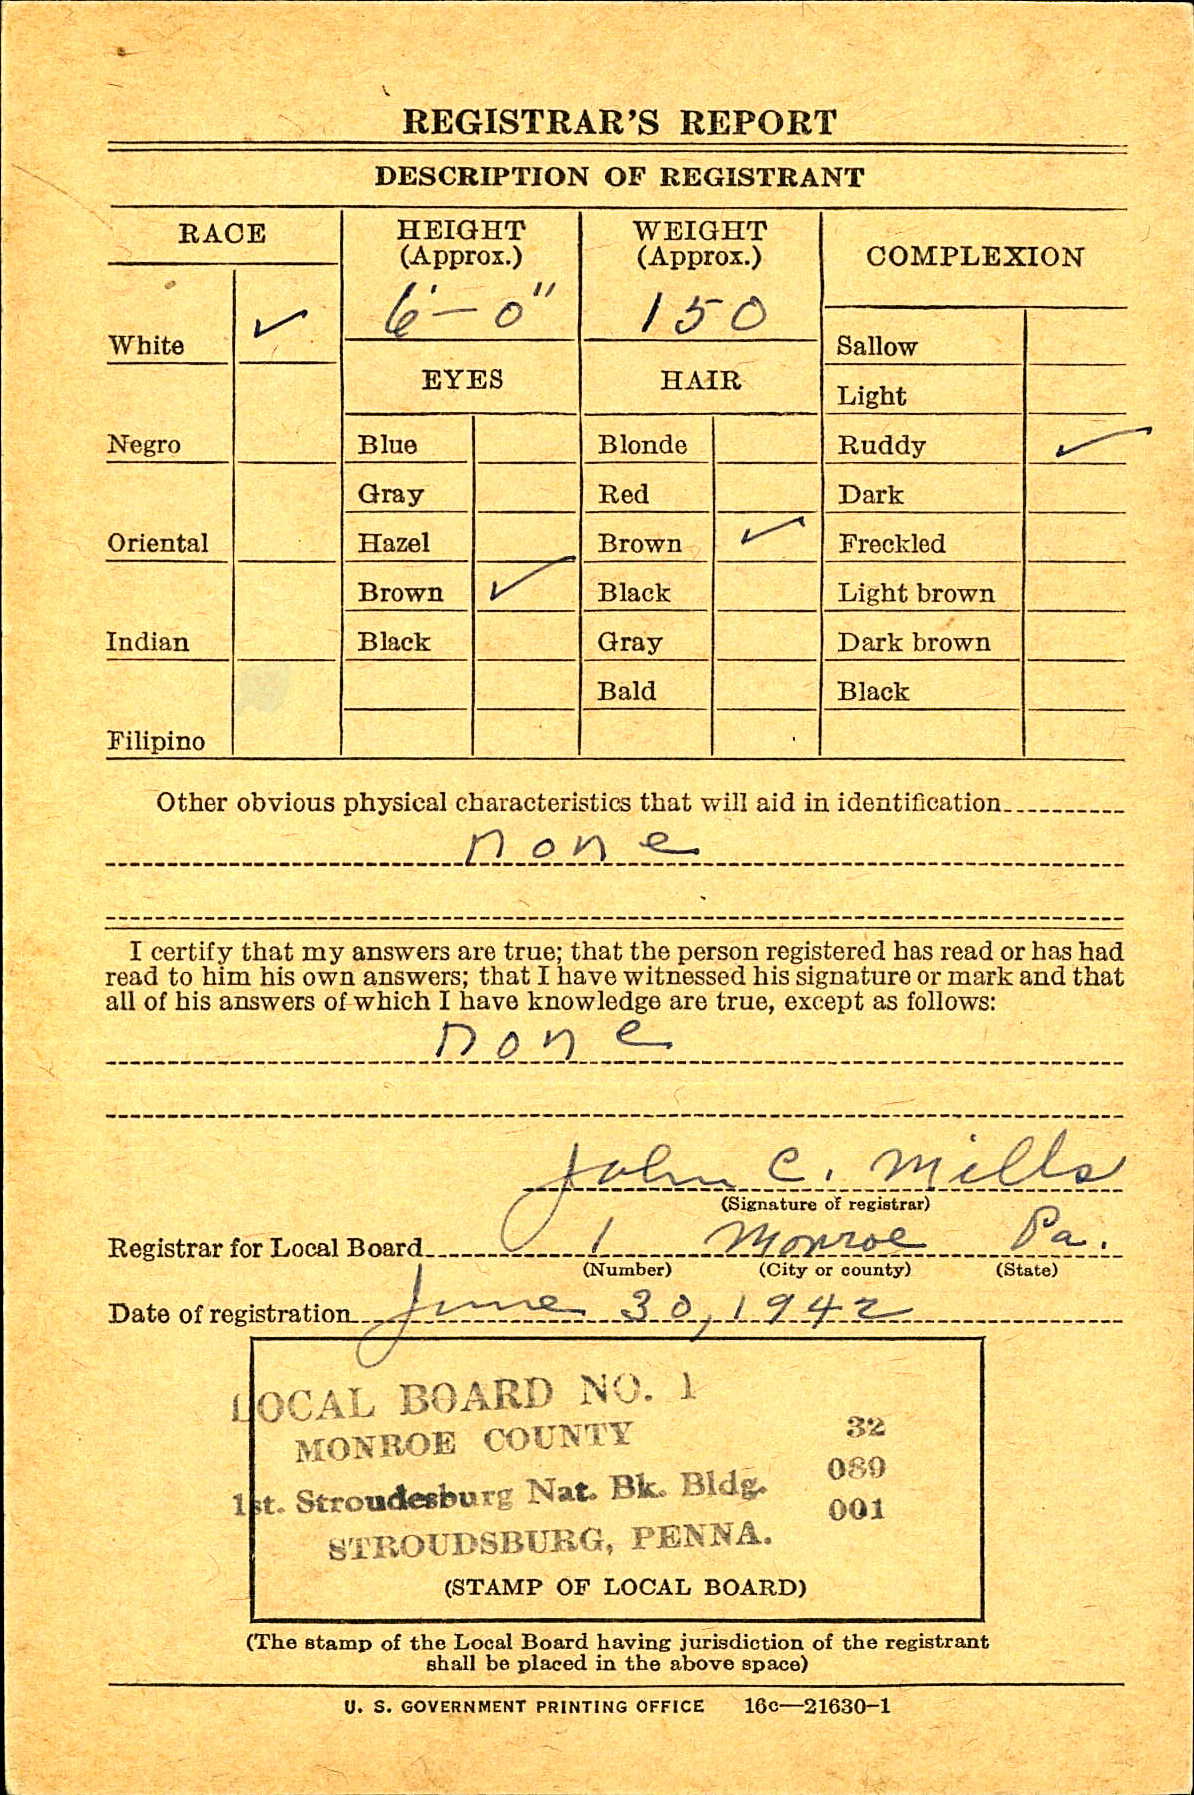 REGISTRAR'S REPORT
DESCRIPTION OF REGISTRANT
RACE
HEIGHT
(Approx.)
WEIGHT
(Approx.)
COMPLEXION
6'-0"
150
White ✓
Sallow
EYES
HAIR
Light
Negro
Blue
Blonde
Ruddy ✓
Gray
Red
Dark
Oriental
Hazel
Brown ✓
Freckled
Brown ✓
Black
Light brown
Indian
Black
Gray
Dark brown
Bald
Black
Filipino
Other obvious physical characteristics that will aid in identification
none
I certify that my answers are true; that the person registered has read or has had
read to him his own answers; that I have witnessed his signature or mark and that
all of his answers of which I have knowledge are true, except as follows:
none
John C. Mills
(Signature of registrar)
Registrar for Local Board 1 Monroe Pa.
(Number) (City or county) (State)
Date of registration June 30, 1942
LOCAL BOARD NO. 1
MONROE COUNTY 32
089
1st. Stroudesburg Nat. Bk. Bldg.
001
STROUDSBURG, PENNA.
(STAMP OF LOCAL BOARD)
(The stamp of the Local Board having jurisdiction of the registrant
shall be placed in the above space)
U. S. GOVERNMENT PRINTING OFFICE 16c—21630-1